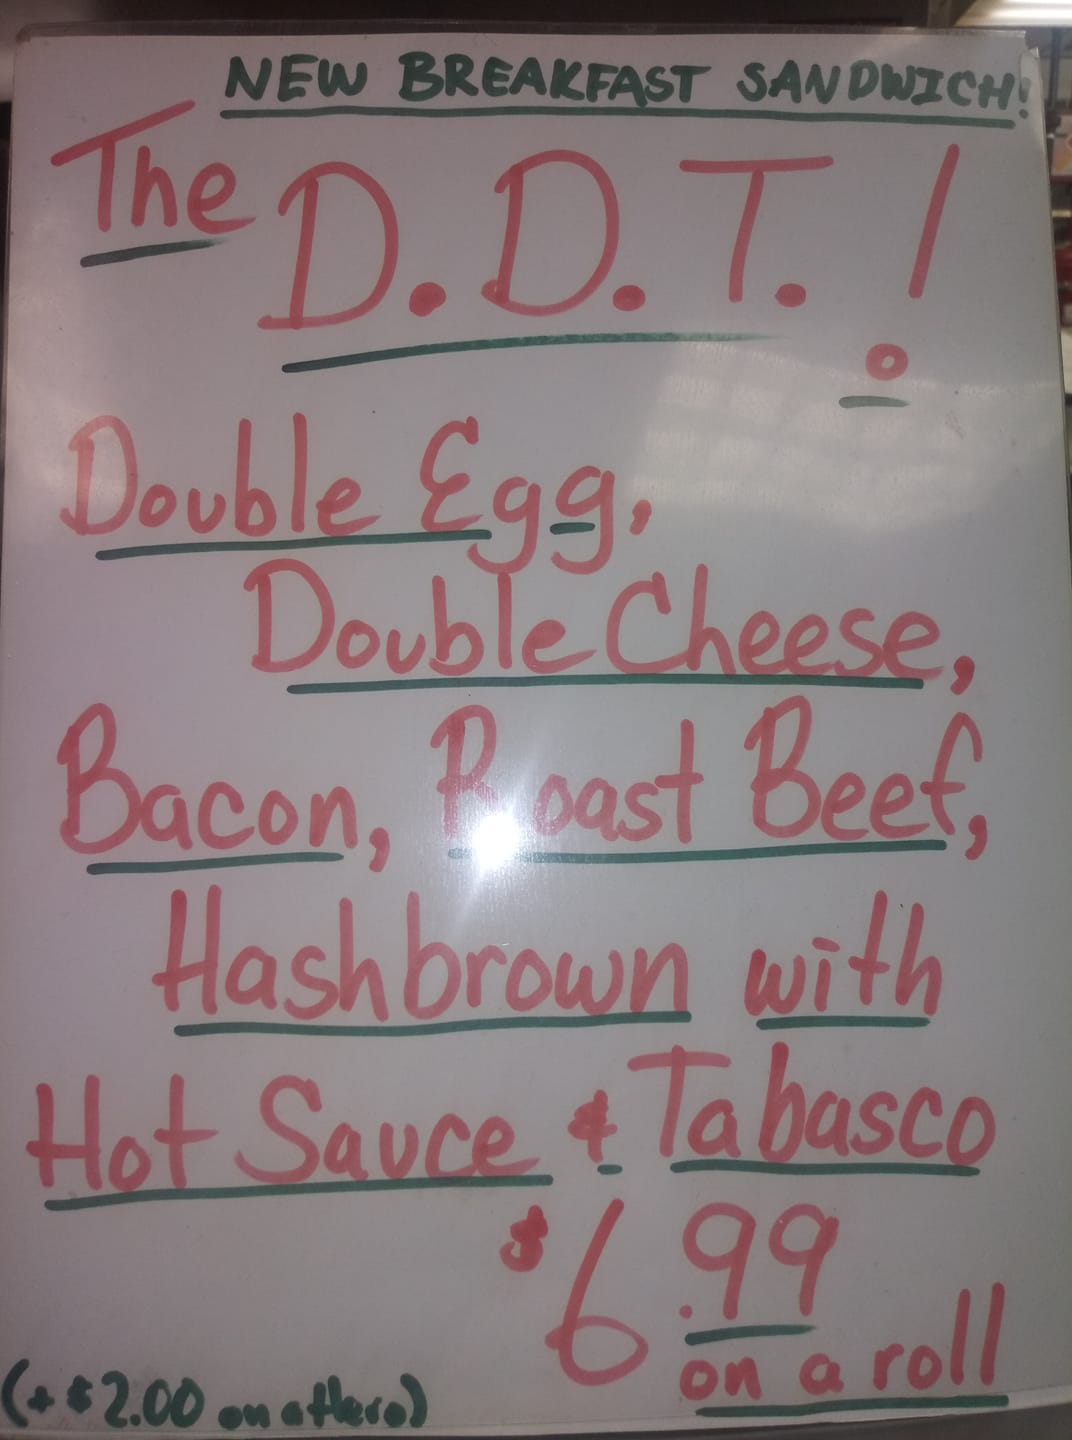 NEW BREAKFAST SANDWICH!
The D.D.T.!
Double Egg,
Double Cheese,
Bacon, Roast Beef,
Hashbrown with
Hot Sauce & Tabasco
$6.99
on a roll
(+ $2.00 on a Hero)